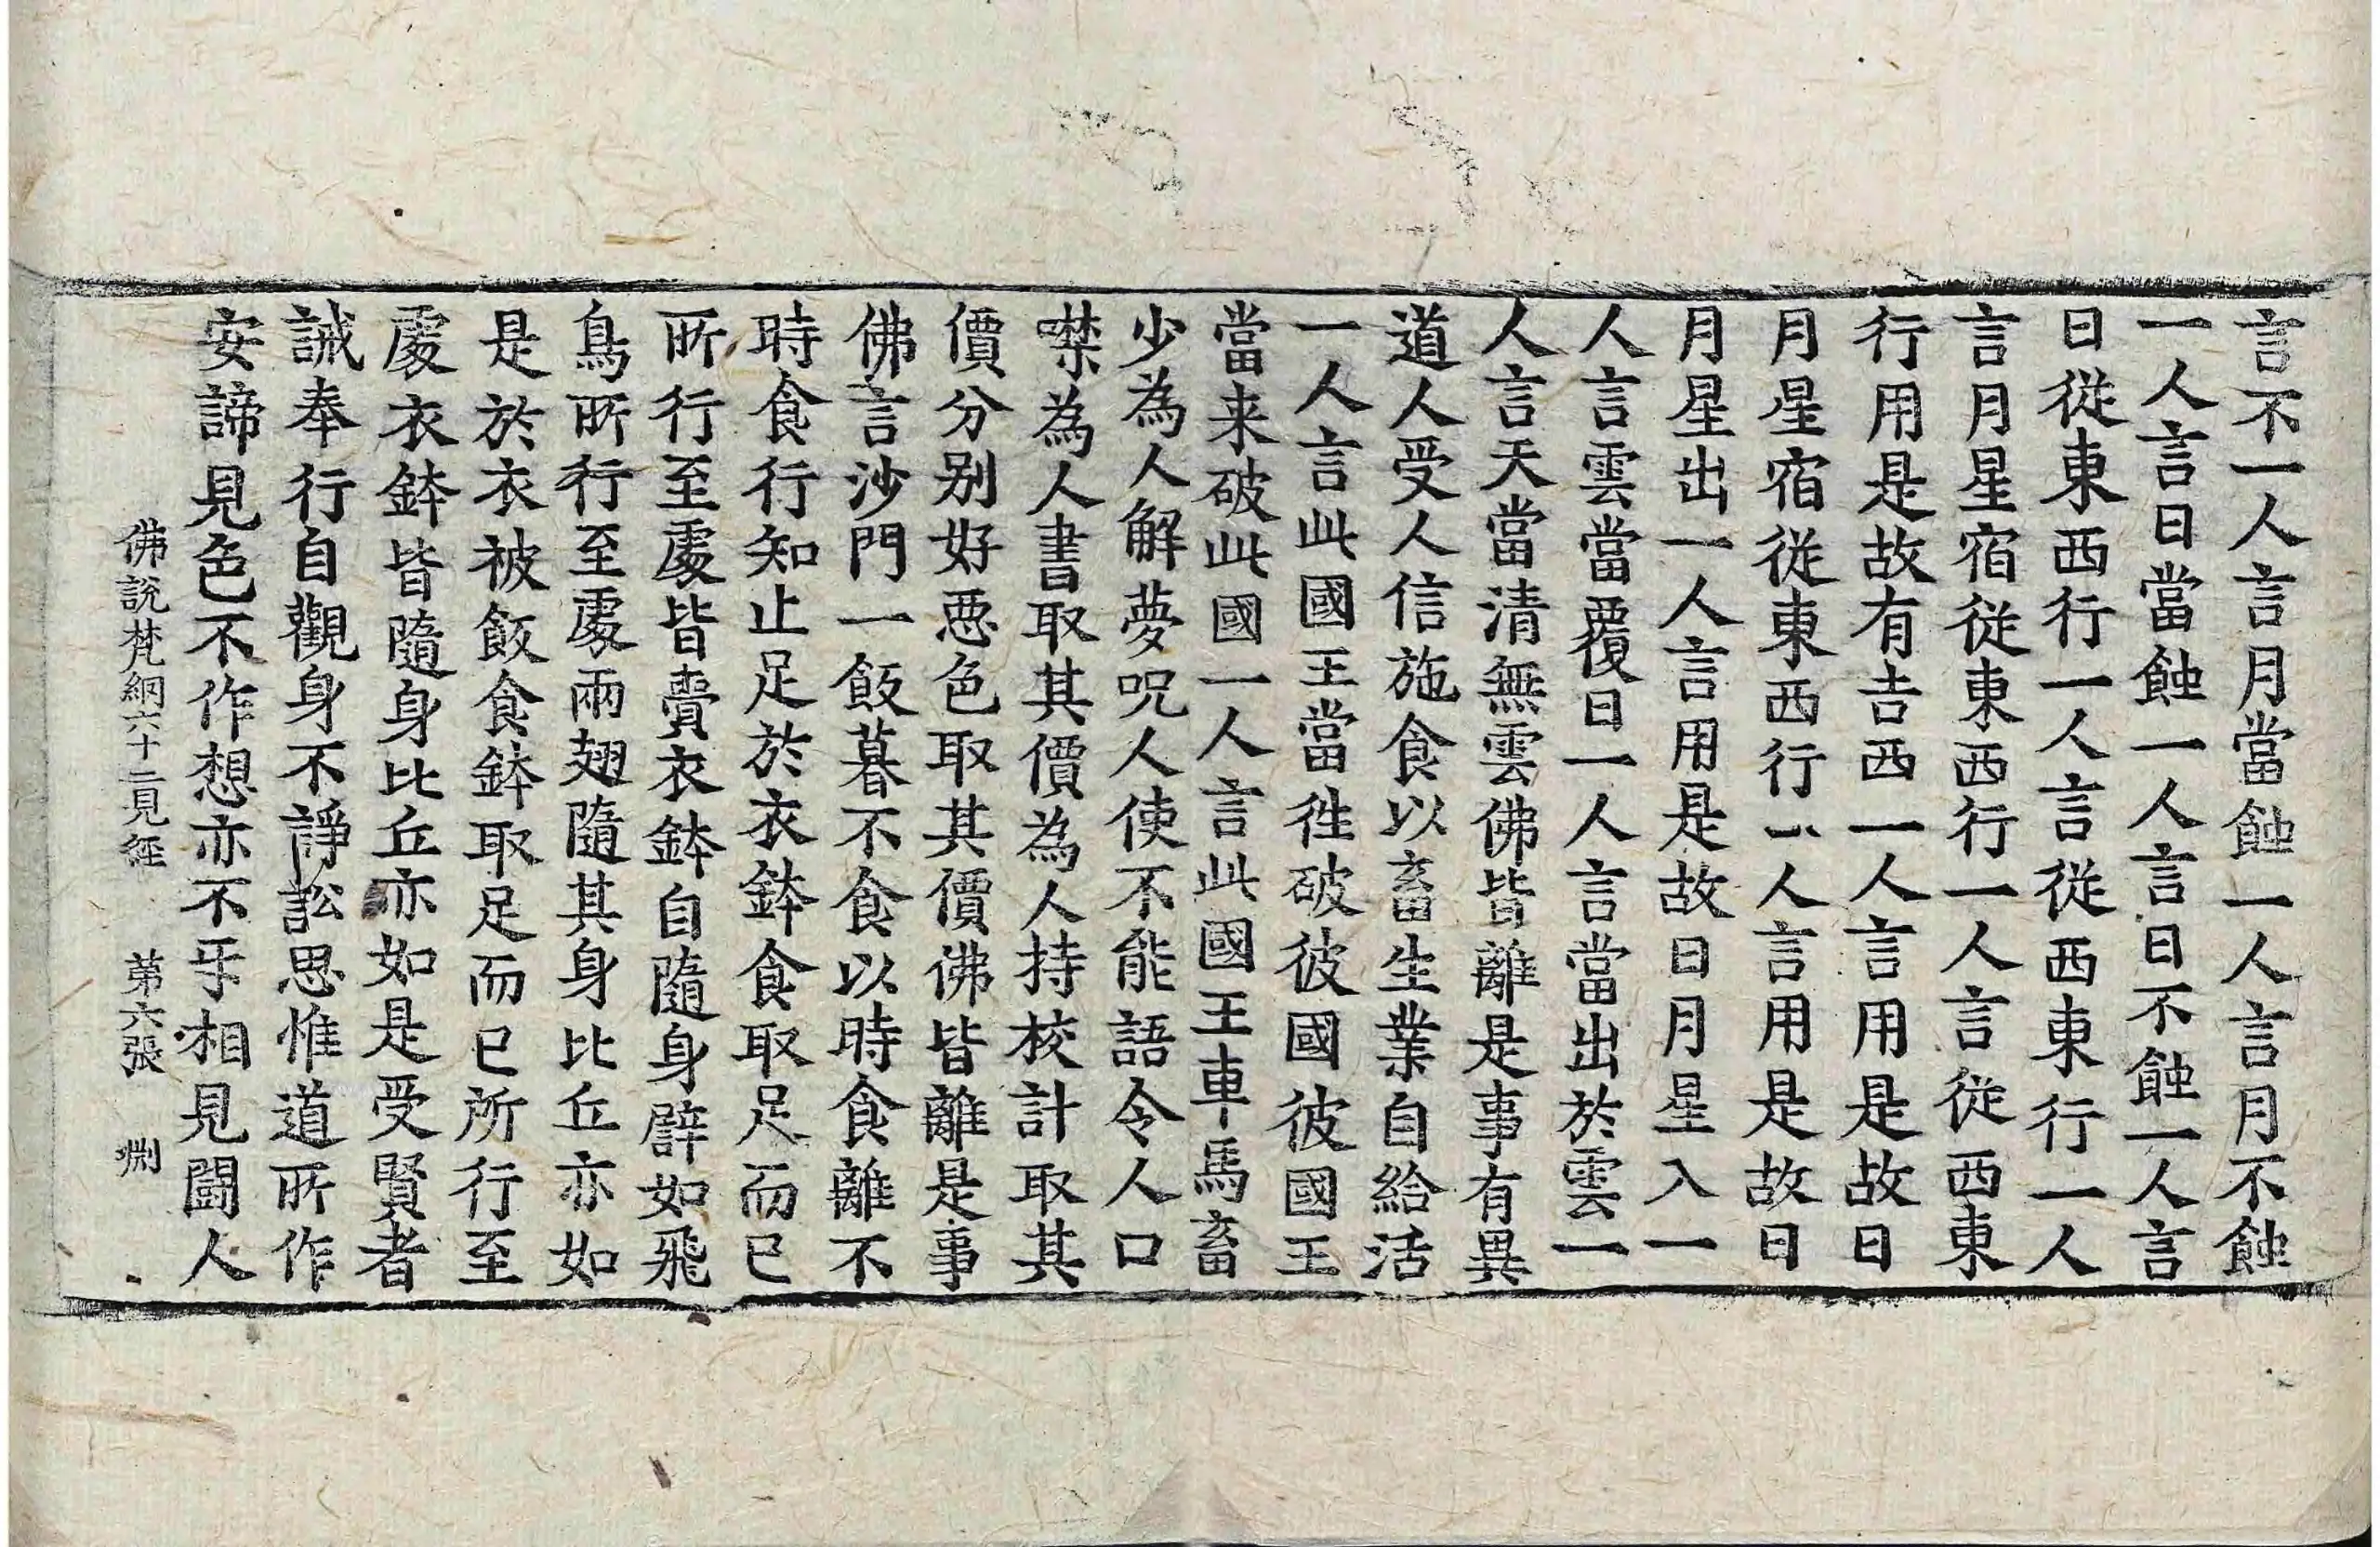 言不一人言月當蝕一人言月不蝕
一人言日當蝕一人言日不蝕一人言
日從東西行一人言從西東行一人
言月星宿從東西行一人言從西東
行用是故有吉西一人言用是故日
月星宿從東西行一人言用是故日
月星出一人言用是故日月星入一
人言雲當覆日一人言當出於雲一
人言天當清無雲佛皆離是事有異
道人受人信施食以畜生業自給活
一人言此國王當徃破彼國彼國王
當来破此國一人言此國王車馬畜
少為人解夢呪人使不能語令人口
噤為人書取其價為人持校計取其
價分别好惡色取其價佛皆離是事
佛言沙門一飯暮不食以時食離不
時食行知止足於衣鉢食取足而已
所行至處皆賷衣鉢自隨身辟如飛
鳥所行至處兩翅隨其身比丘亦如
是於衣被飯食鉢取足而已所行至
處衣鉢皆隨身比丘亦如是受賢者
誡奉行自觀身不諍訟思惟道所作
安諦見色不作想亦不乎相見鬪人
佛說梵網六十二見經 第六張 淵